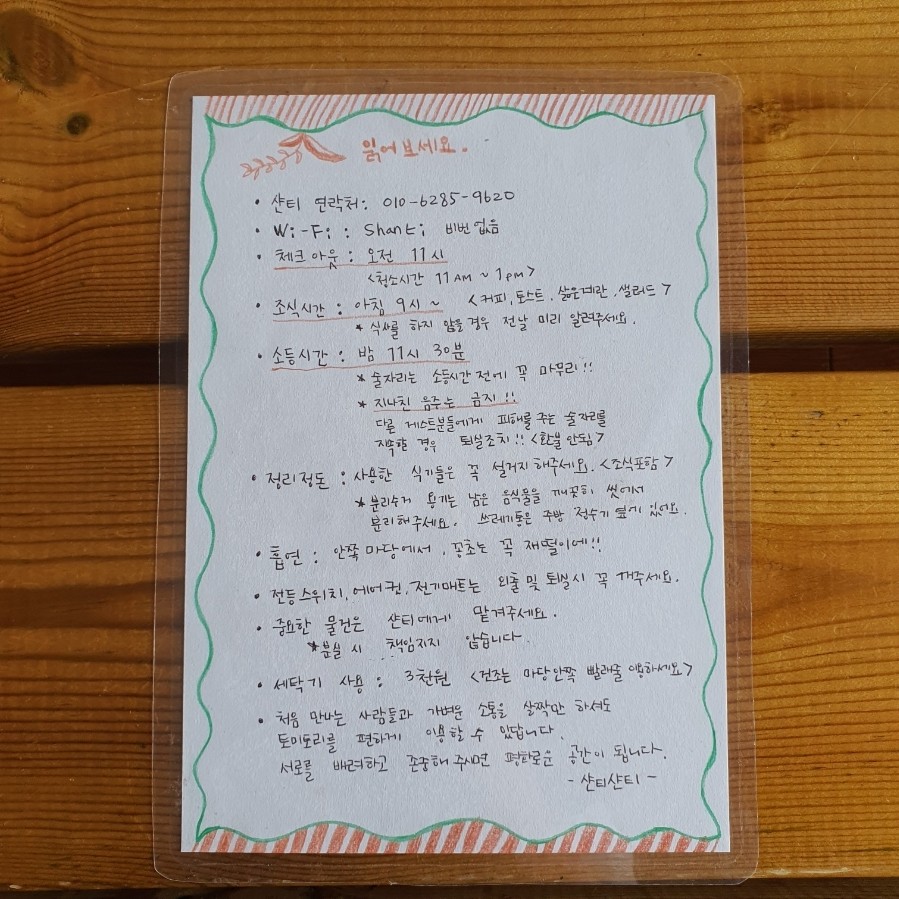 읽어보세요.
• 샨티 연락처: 010-6285-9620
• Wi-Fi : Shanti 비번 없음
• 체크아웃 : 오전 11시
<청소시간 11AM ~ 1PM>
• 조식시간 : 아침 9시 ~ <커피, 토스트, 삶은계란, 샐러드>
* 식사를 하지 않을 경우 전날 미리 알려주세요.
• 소등시간 : 밤 11시 30분
* 술자리는 소등시간 전에 꼭 마무리!!
* 지나친 음주는 금지!!
다른 게스트분들에게 피해를 주는 술자리를
지속할 경우 퇴실조치!! <환불 안됨>
• 정리정돈 : 사용한 식기들은 꼭 설거지 해주세요. <조식포함>
* 분리수거 용기는 남은 음식물을 깨끗히 씻어서
분리해주세요. 쓰레기통은 주방 정수기 옆에 있어요.
• 흡연 : 안쪽 마당에서, 꽁초는 꼭 재떨이에!!
• 전등스위치, 에어컨, 전기매트는 외출 및 퇴실시 꼭 꺼주세요.
• 중요한 물건은 샨티에게 맡겨주세요.
* 분실 시 책임지지 않습니다.
• 세탁기 사용 : 3천원 <건조는 마당안쪽 빨래줄 이용하세요>
• 처음 만나는 사람들과 가벼운 소통을 살짝만 하셔도
도미토리를 편하게 이용할 수 있답니다.
서로를 배려하고 존중해 주시면 평화로운 공간이 됩니다.
- 샨티샨티 -